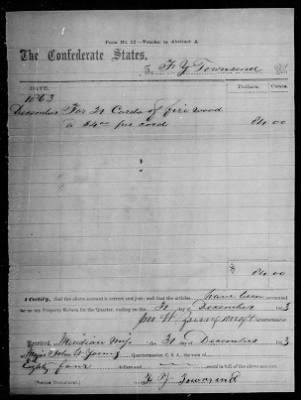 Form No. 22—Voucher to Abstract A.
The Confederate States,
To F. Y. Townsend Dr.
DATE. Dollars. Cents.
1863
December For 21 Cords of fire wood
a $4.00 per cord 84.00
84.00
I Certify, that the above account is correct and just; and that the articles have been
for on my Property Return for the Quarter, ending on the 31 of December 1863
Jno W Young Maj &
Received, Meridian Miss 31 December 1863
Major John W Young Quartermaster, C. S. A., the sum of
Eighty four in full of the above account.
(Signed Duplicates.) F Y Townsend